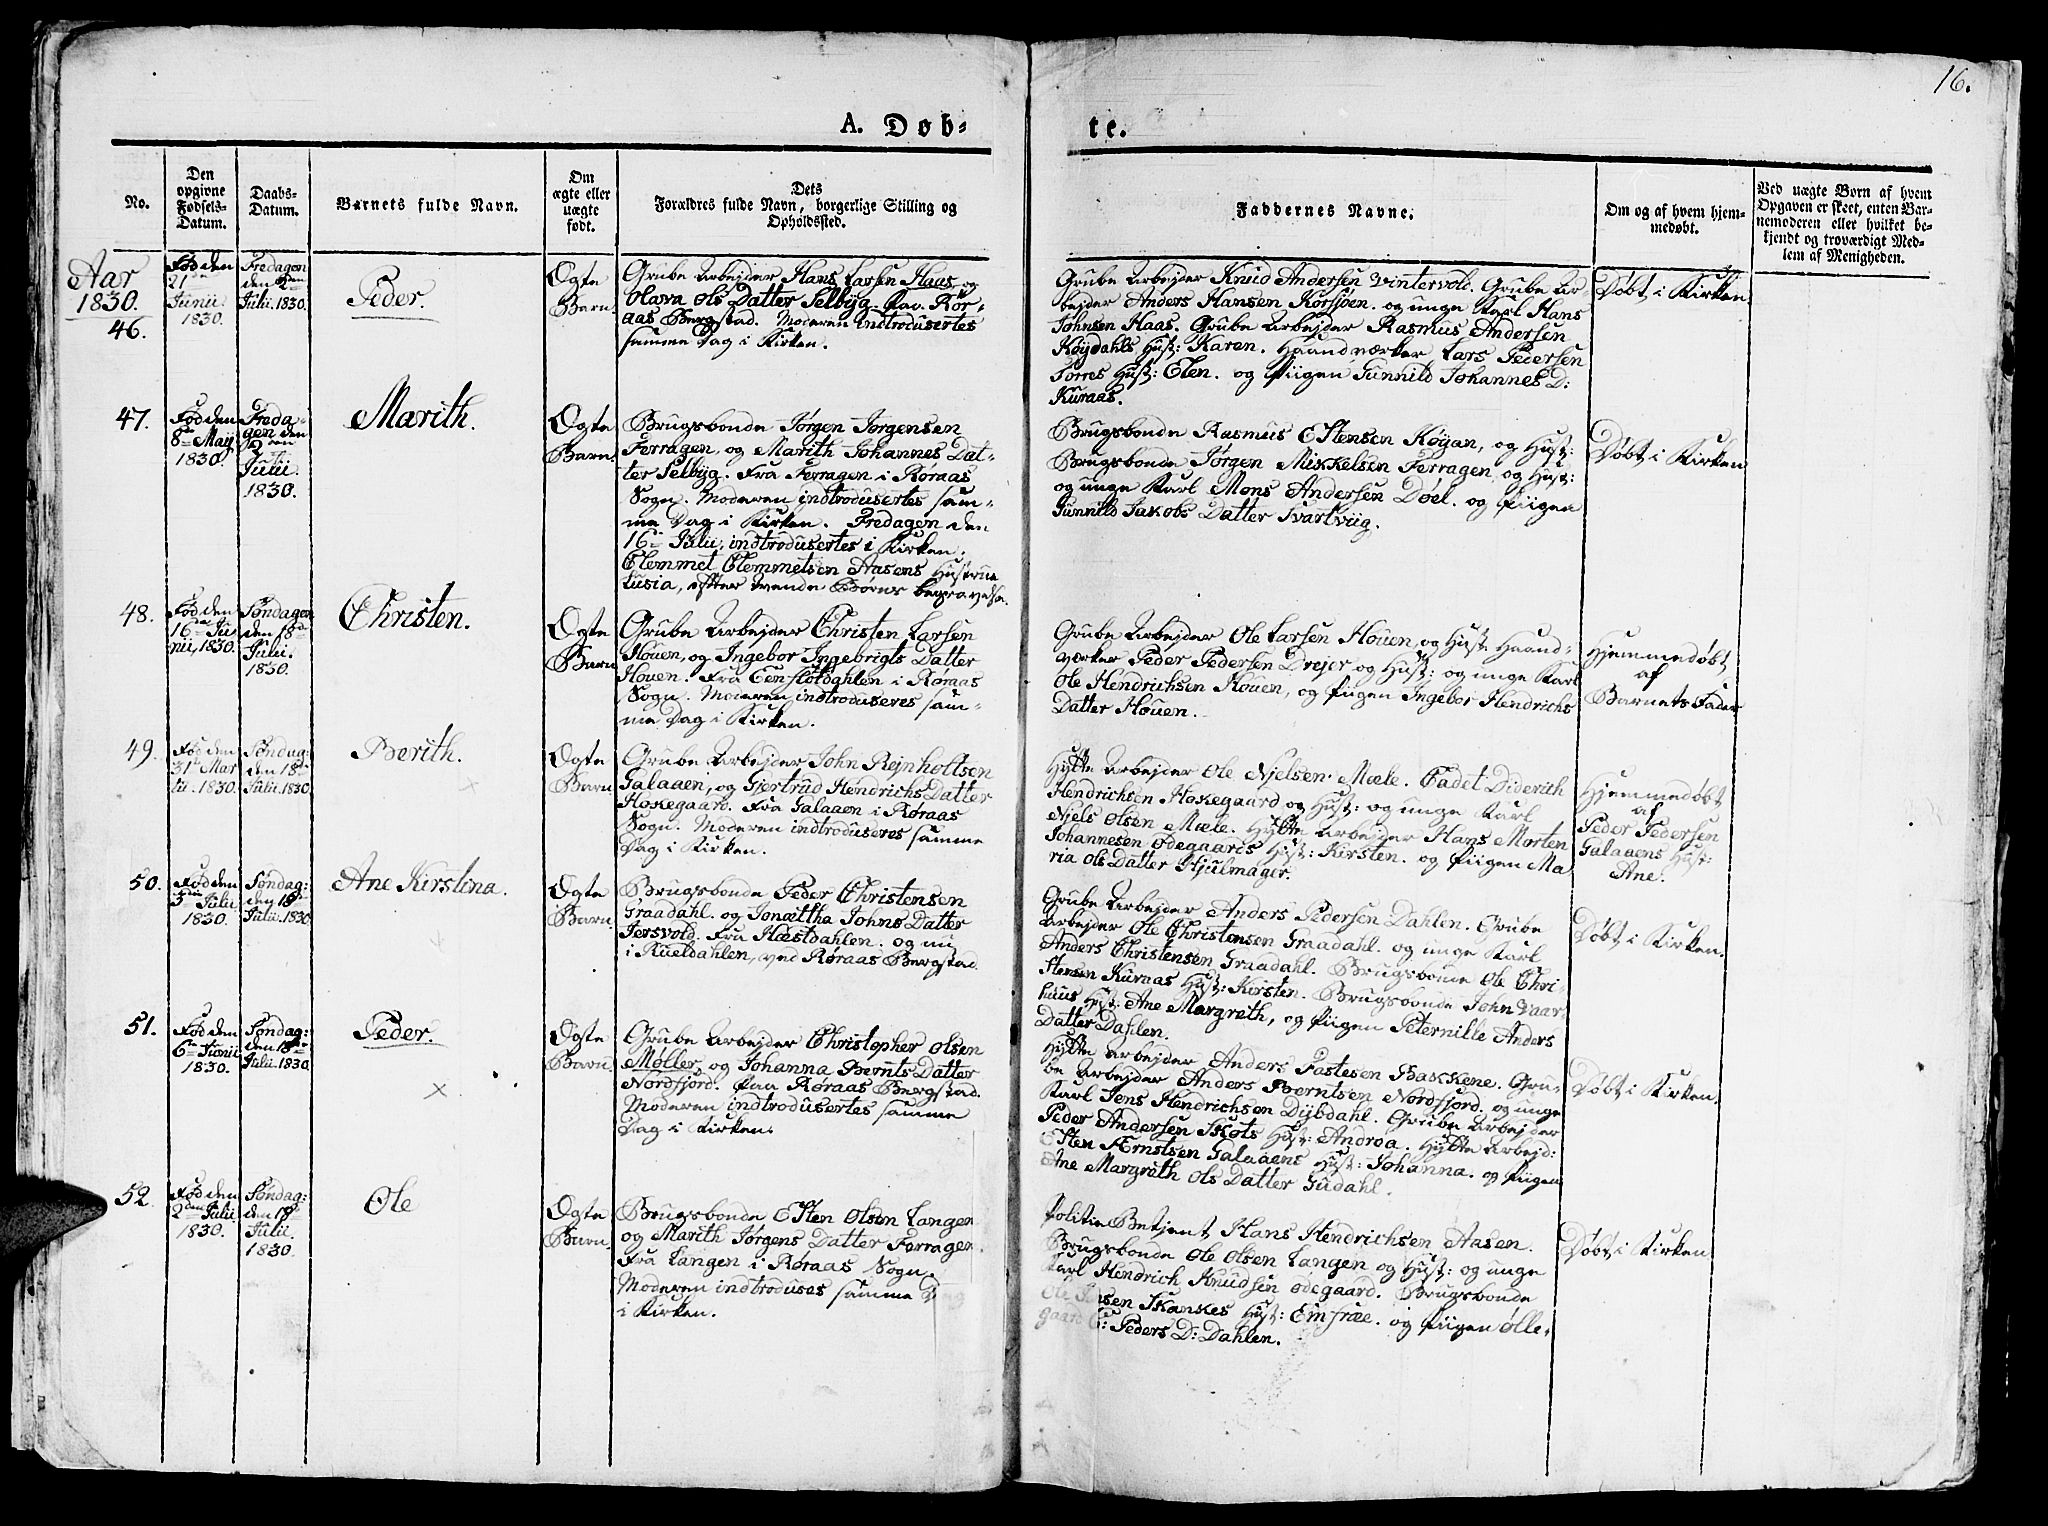 16.
A. Døb-
te.
No.
Den
opgivne
Fødsels-
Datum.
Daabs-
Datum.
Barnets fulde Navn.
Om
ægte eller
uægte
født.
Dets
Forældres fulde Navn, borgerlige Stilling og
Opholdssted.
Faddernes Navne.
Om og af hvem hjem-
medøbt.
Ved uægte Børn af hvem
Opgaven er skeet, enten Bar-
nemoderen eller hvilket be-
kjendt og troværdigt Med-
lem af Menigheden.
Aar
1830.
46.
Fød den
21
Junii.
1830.
Fredagen
den 2den
Julii. 1830.
Peder.
Ægte
Barn.
Grube Arbejder Hans Larsen Haas og
Olava Ols Datter Selbÿg. Paa Rör-
aas Bergstad. Moderen indtrodusertes
samme Dag i Kirken.
Grube Arbejder Knud Andersen Vintervold. Grube Ar-
bejder Anders Hansen Korsjöen. og unge Karl Hans
Johnsen Haas. Grube Arbejder Rasmus Andersen
Köÿdahls Hust: Karen. Haandværker Lars Pedersen
Torres Hust: Elen. og Piigen Gunnild Johannes D:
Kuraas.
Døbt i Kirken
47.
Fød den
8de Maÿ
1830.
Freda-
gen den
2den
Julii
1830.
Marith.
Ægte
Barn.
Brugsbonde Jørgen Jørgensen
Ferragen, og Marith Johannes Dat-
ter Selbÿg. Fra Ferragen i Røraas
Sogn. Moderen indtrodusertes sam-
me Dag i Kirken. Fredagen den
16de Julii, indtrodusertes i Kirken.
Clemmet Clemmetsen Aasens Hustrue
Lusia, efter hendes Børns begravelse.
Brugsbonde Rasmus Estensen Köÿan, og Hust:
Brugsbonde Jørgen Mikkelsen Ferragen og Hust:
og unge Karl Mons Andersen Döel. og Piigen
Gunnild Jakobs Datter Svartviig.
Døbt i Kirken
48.
Fød den
16de Ju
nii, 1830.
Søndagen
den 18de
Julii.
1830.
Christen.
Ægte
Barn
Grube Arbejder Christen Larsen
Houen, og Ingebor Ingebrigts Datter
Houen. Fra Eenfoldahlen i Røraas
Sogn. Moderen indtroduseres sam-
me Dag i Kirken.
Grube Arbejder Ole Larsen Houen, og Hust: Haand-
værker Peder Pedersen Drejer og Hust: og unge Karl
Ole Hendrichsen Houen, og Piigen Ingebor Hendrichs
Datter Houen.
Hjemmedøbt
af
Barnets Fader
49.
Fød den
31te Mar
tii. 1830.
Søndag:
den 18de
Julii. 1830.
Berith.
Ægte
Barn
Grube Arbejder John Rejnholtsen
Galaaen, og Gjertrud Hendrichs Datter
Hoskegaard. Fra Galaaen i Røraas
Sogn. Moderen indtroduseres samme
Dag i Kirken.
Hÿtte Arbejder Ole Njelsen Mæle. Cadet Diderich
Hendrichsen Hoskegaard og Hust: og unge Karl
Njels Olsen Mæle. Hÿtte Arbejder Hans Morten
Johannesen Ødegaards Hust: Kirsten. og Piigen Ma
ria Ols Datter Hjulmager.
Hjemmedøbt
af
Peder Pedersen
Galaaens Hust:
Ane.
50.
Fød den
5te Julii
1830.
Søndag:
den 18de
Julii. 1830
Ane Kirstina.
Ægte
Barn.
Brugsbonde Peder Christensen
Graadahl. og Jonættha Johns Datter
Jersvold. Fra Hæstdahlen. og nu
i Kueldahlen, ved Røraas Bergstad.
Grube Arbejder Anders Pedersen Dahlen. Grube
Arbejder Ole Christensen Graadahl. og unge Karl
Anders Christensen Graadahl. Brugsbonde Ole Chri-
stensen Kuraas Hust: Kirsten. Brugsbonde John Vaar
huus Hust: Ane Margreth, og Piigen Peternille Anders
Datter Dahlen.
Døbt i Kirken.
51.
Fød den
6te Junii
1830.
Søndag:
den 18de
Julii. 1830
Peder.
Ægte
Barn.
Grube Arbejder Christopher Olsen
Møller, og Johanna Bernts Datter
Nordfjord. Paa Røraas Bergstad.
Moderen indtrodusertes samme
Dag i Kirken.
Hÿtte Arbejder Anders Fastesen Bakkene. Gru-
be Arbejder Anders Berntsen Nordfjord. og unge
Karl Jens Hendrichsen Dÿbdahl. Grube Arbejder
Peder Andersen Skots Hust: Androa. Hÿtte Arbejd:
Esten Ærnstsen Galaaens Hust: Johanna. og Piigen
Ane Margreth Ols Datter Gudahl.
Døbt i Kirken.
52.
Fød den
2den Julii
1830.
Søndag:
den 18de
Julii.
1830.
Ole
Ægte
Barn.
Brugsbonde Esten Olsen Langen
og Marith Jørgens Datter Ferragen.
Fra Langen i Røraas Sogn.
Moderen indtroduses samme Dag
i Kirken.
Politie Betjent Hans Hendrichsen Aasen.
Brugsbonde Ole Olsen Langen og Hust: og unge
Karl Hendrich Knudsen Ødegaard. Brugsbonde
Ole Jensen Skankes Hust: Einfræe. og Piigen Ølle-
gaard C: Peders D: Dahlen.
Døbt i Kirken